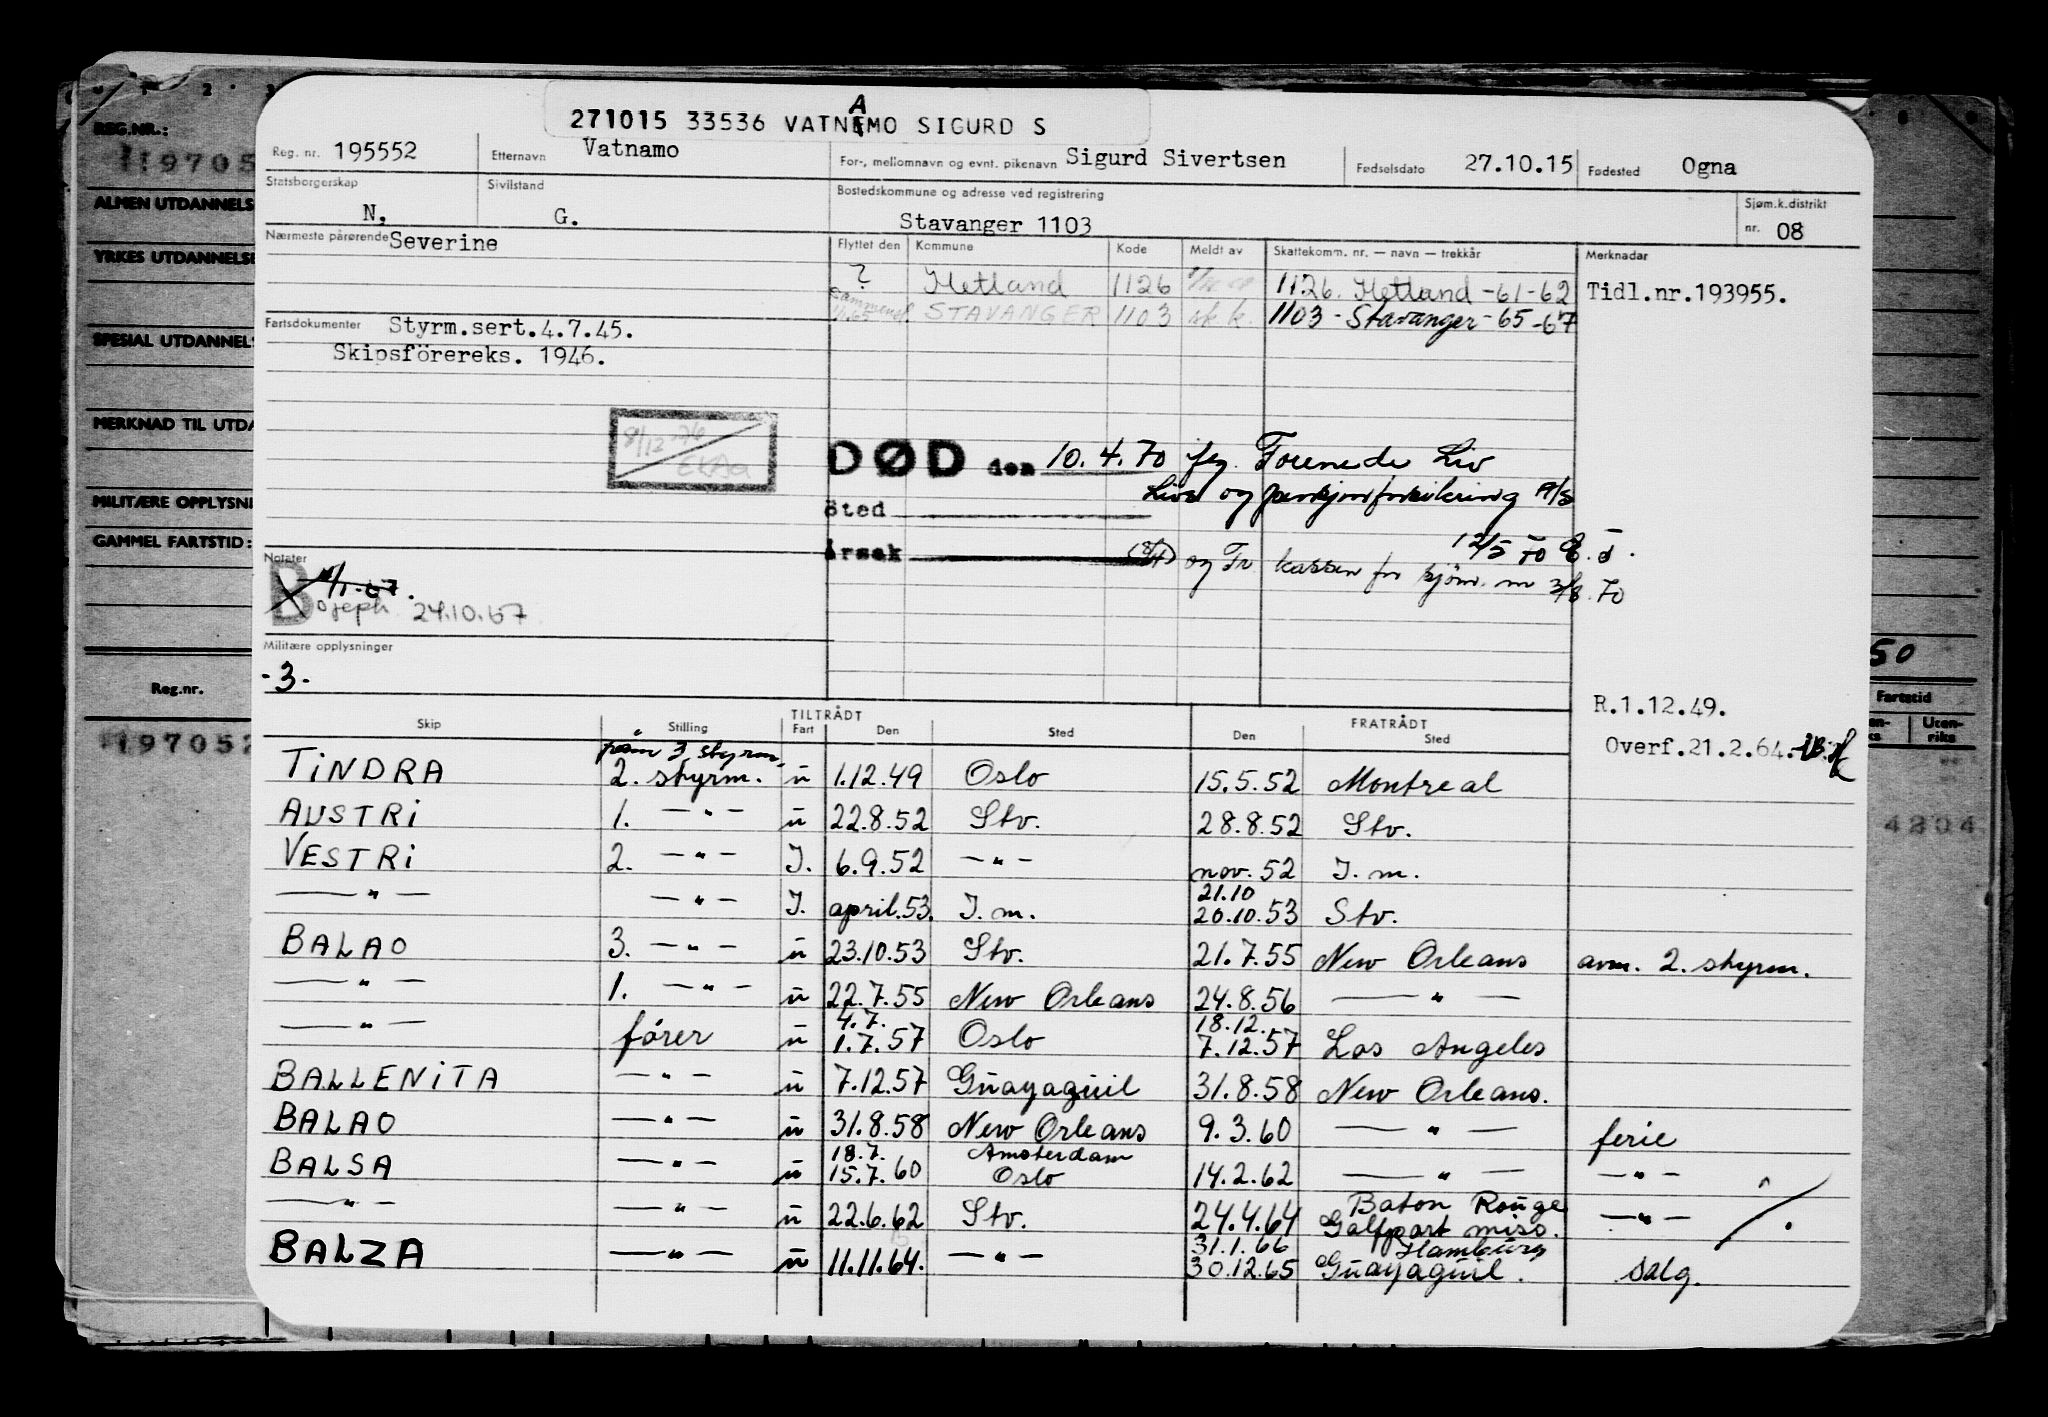 271015 33536 VATNAMO SIGURD S
Reg. nr. 195552 Etternavn Vatnamo For-, mellomnavn og evnt. pikenavn Sigurd Sivertsen Fødselsdato 27.10.15 Fødested Ogna
Statsborgerskap N, Sivilstand G. Bostedskommune og adresse ved registrering Stavanger 1103 Sjøm.k.distrikt nr. 08
Nærmeste pårørende Severine
Flyttet den Kommune Kode Meldt av Skattekomm. nr. — navn — trekkår Merknadar
? Hetland 1126 1126. Hetland -61-62 Tidl.nr.193955.
STAVANGER 1103 sk k. 1103 - Stavanger -65 -67
Fartsdokumenter Styrm.sert.4.7.45.
Skipsförereks. 1946.
8/12
DØD den 10.4.70 Forenede Liv
Livs og A/S
Sted
Årsak og Tr kassen for sjöm. 3/8. 70
12/5 70
Notater
B 24.10.67
Militære opplysninger
-3.
R.1.12.49.
Overf.21.2.64.
TILTRÅDT FRATRÅDT
Skip Stilling Fart Den Sted Den Sted
3 styrm.
TINDRA 2. styrm. u 1.12.49 Oslo 15.5.52 Montreal
AUSTRI 1. —"— u 22.8.52 Stv. 28.8.52 Stv.
VESTRI 2. —"— I. 6.9.52 —"— nov. 52 I. m.
—"— —"— I. april.53. I. m. 21.10 20.10.53 Stv.
BALAO 3. —"— u 23.10.53 Stv. 21.7.55 New Orleans avm. 2. styrm.
—"— 1. —"— u 22.7.55 New Orleans 24.8.56 —"—
—"— fører u 4.7. 1.7.57 Oslo 18.12. 7.12.57 Los Angeles
BALLENITA —"— u 7.12.57 Guayaquil 31.8.58 New Orleans.
BALAO —"— u 31.8.58 New Orleans 9.3.60 —"— ferie
BALSA —"— u 18.7. 15.7.60 Amsterdam Oslo 14.2.62 —"— —"—
—"— —"— u 22.6.62 Stv. 24.4.64 Baton Rouge Golfport miss. —"—
BALZA —"— u 11.11.64. —"— 31.1.66 30.12.65 Hamburg Guayaquil. salg.
REG.NR.:
197052
ALMEN UTDANNELS
YRKES UTDANNELSE
SPESIAL UTDANNELS
MERKNAD TIL UTDA
MILITÆRE OPPLYSNI
GAMMEL FARTSTID:
Reg.nr.
197052
50
Fartstid
Uten-
riks
4804